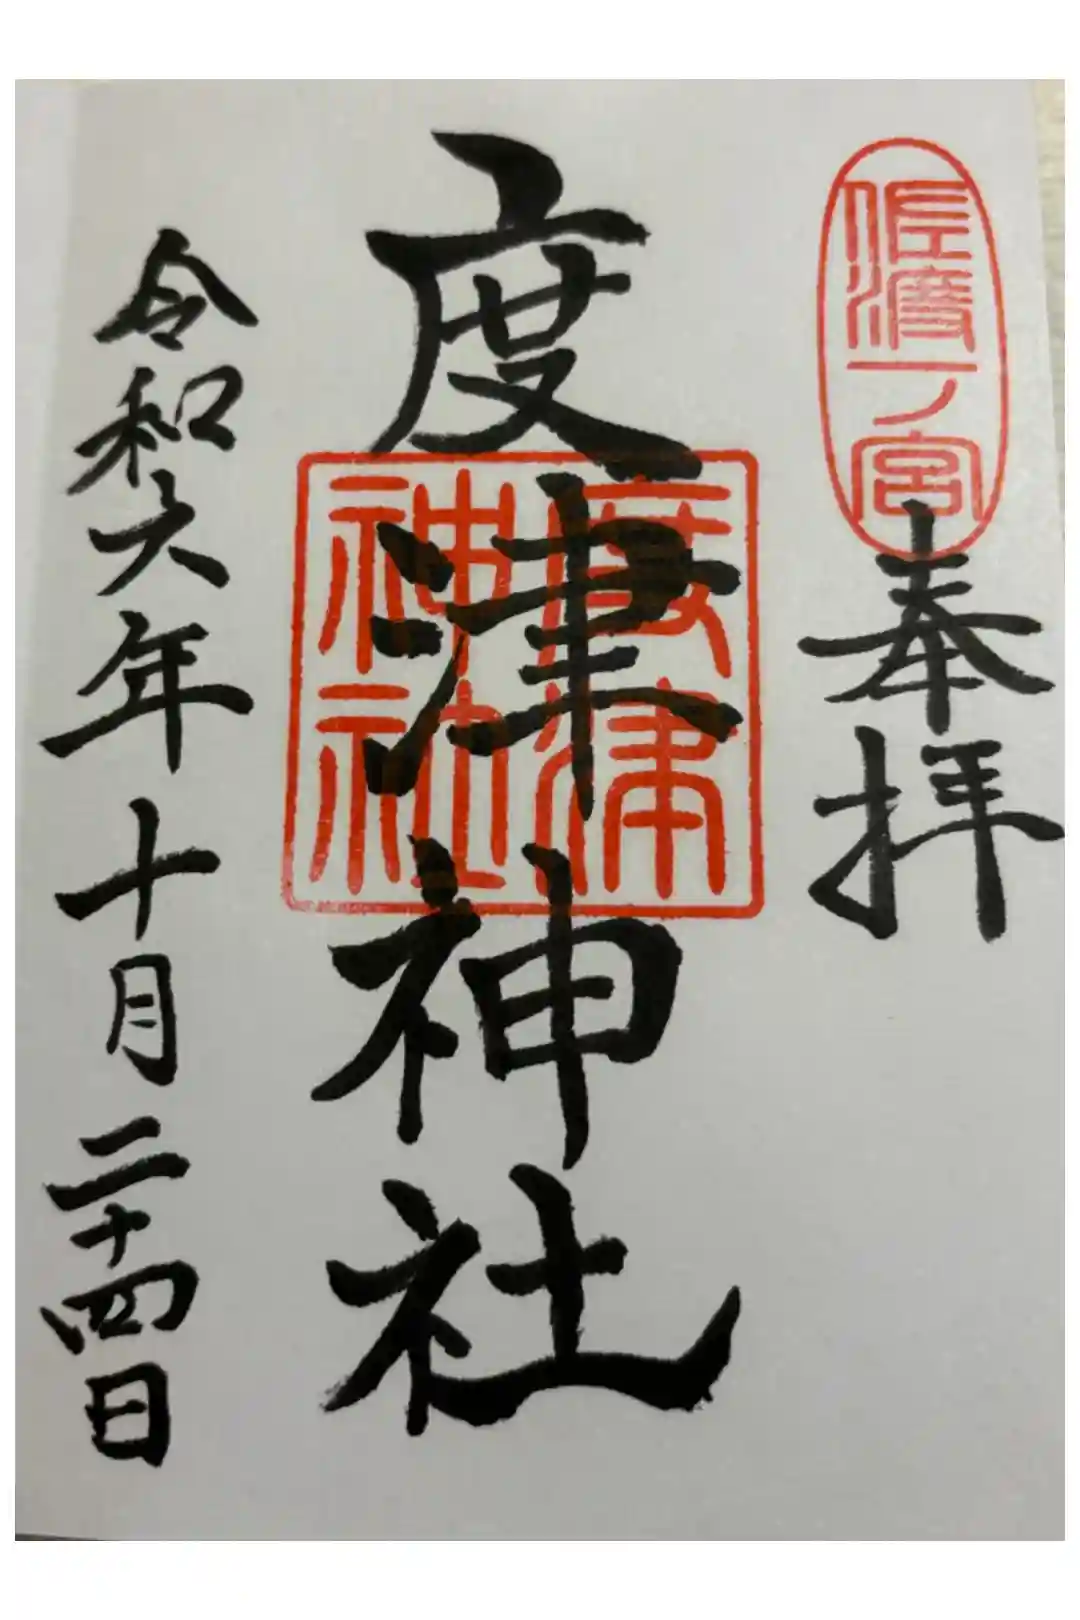 佐渡一ノ宮
奉拝
度津神社
度津
神社
令和六年十月二十四日